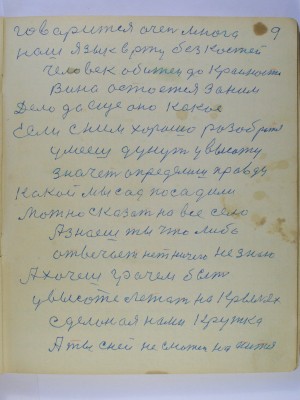 говарится очен многа 9
наш язык в рту без костей
человек обижен до крайност
вина остоется за ним
Дело да еще оно какое
Если сним хорошо разобратся
умееш дунут у высоту
значет определиш правду
Какой мы сад посадили
можно сказат на все село
А знаеш ты что либо
отвечает нет ничего не знаю
А хочеш грачем быт
у высоте летат на крылех
сделоная нами кружка
А ты сней не сможеш на